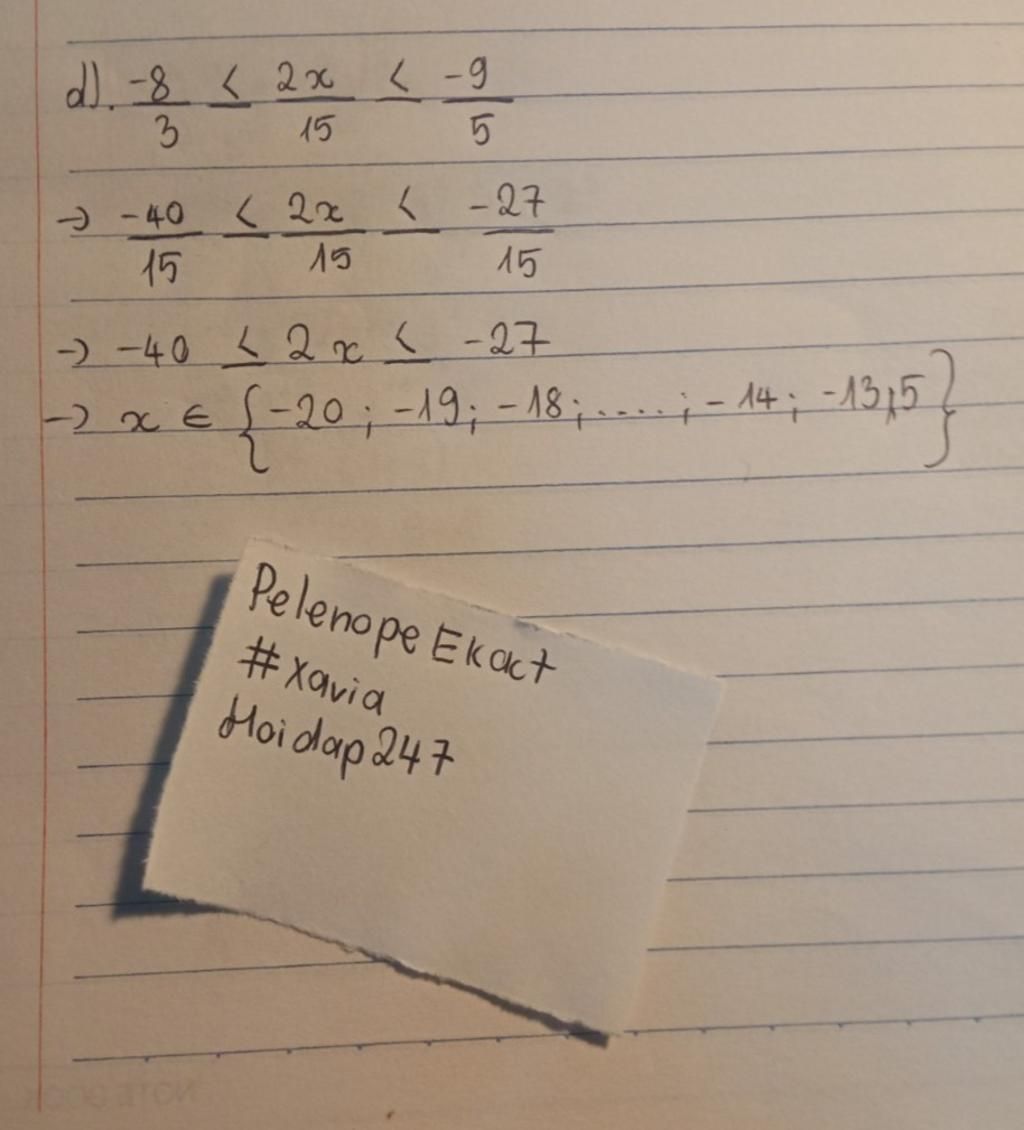 d). -8/3 ≤ 2x/15 ≤ -9/5
→ -40/15 ≤ 2x/15 ≤ -27/15
→ -40 ≤ 2x ≤ -27
→ x ∈ {-20; -19; -18; ....; -14; -13,5}
Pelenope Ekact
#xavia
Hoidap247
NOTE BOOK